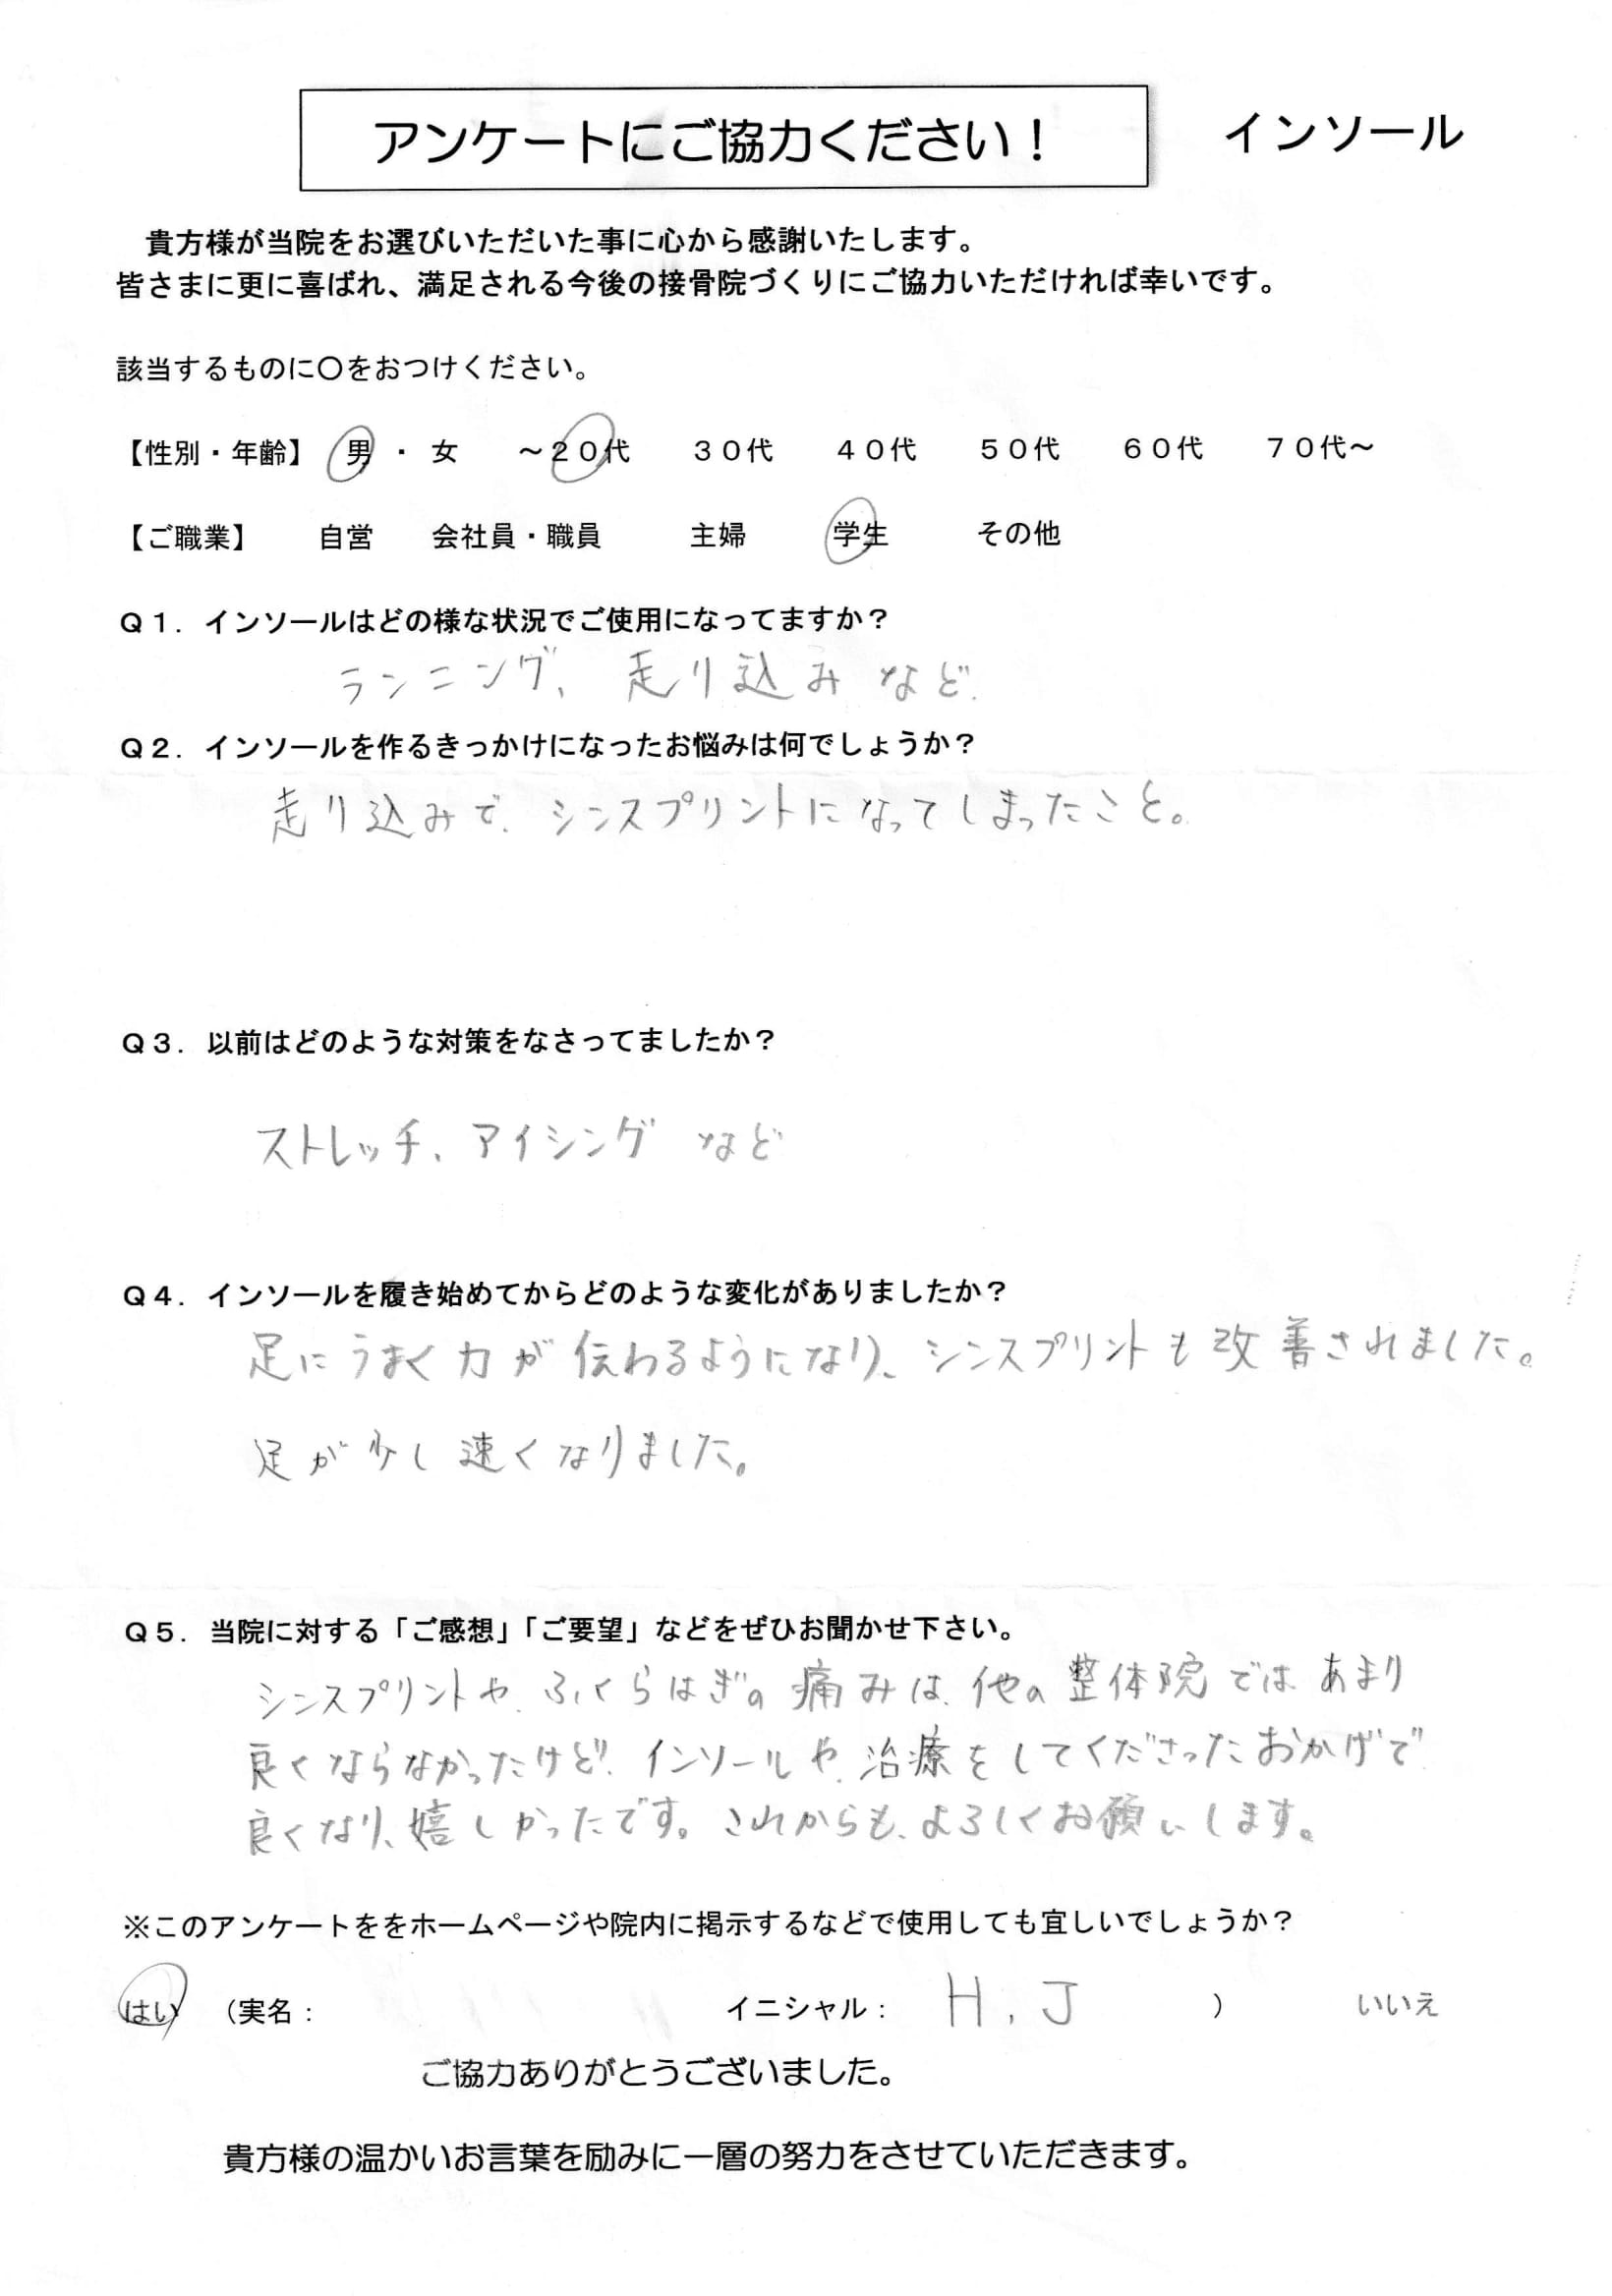 アンケートにご協力ください！ インソール
貴方様が当院をお選びいただいた事に心から感謝いたします。
皆さまに更に喜ばれ、満足される今後の接骨院づくりにご協力いただければ幸いです。
該当するものに〇をおつけください。
【性別・年齢】 男 ・ 女 ～２０代 ３０代 ４０代 ５０代 ６０代 ７０代～
【ご職業】 自営 会社員・職員 主婦 学生 その他
Ｑ１．インソールはどの様な状況でご使用になってますか？
ランニング、走り込みなど.
Ｑ２．インソールを作るきっかけになったお悩みは何でしょうか？
走り込みで、シンスプリントになってしまったこと。
Ｑ３．以前はどのような対策をなさってましたか？
ストレッチ、アイシング など
Ｑ４．インソールを履き始めてからどのような変化がありましたか？
足にうまく力が伝わるようになり、シンスプリントも改善されました。
足が少し速くなりました。
Ｑ５．当院に対する「ご感想」「ご要望」などをぜひお聞かせ下さい。
シンスプリントや、ふくらはぎの痛みは、他の整体院ではあまり
良くならなかったけど、インソールや、治療をしてくださったおかげで
良くなり、嬉しかったです。これからも、よろしくお願いします。
※このアンケートををホームページや院内に掲示するなどで使用しても宜しいでしょうか？
はい （実名： イニシャル： H.J ） いいえ
ご協力ありがとうございました。
貴方様の温かいお言葉を励みに一層の努力をさせていただきます。